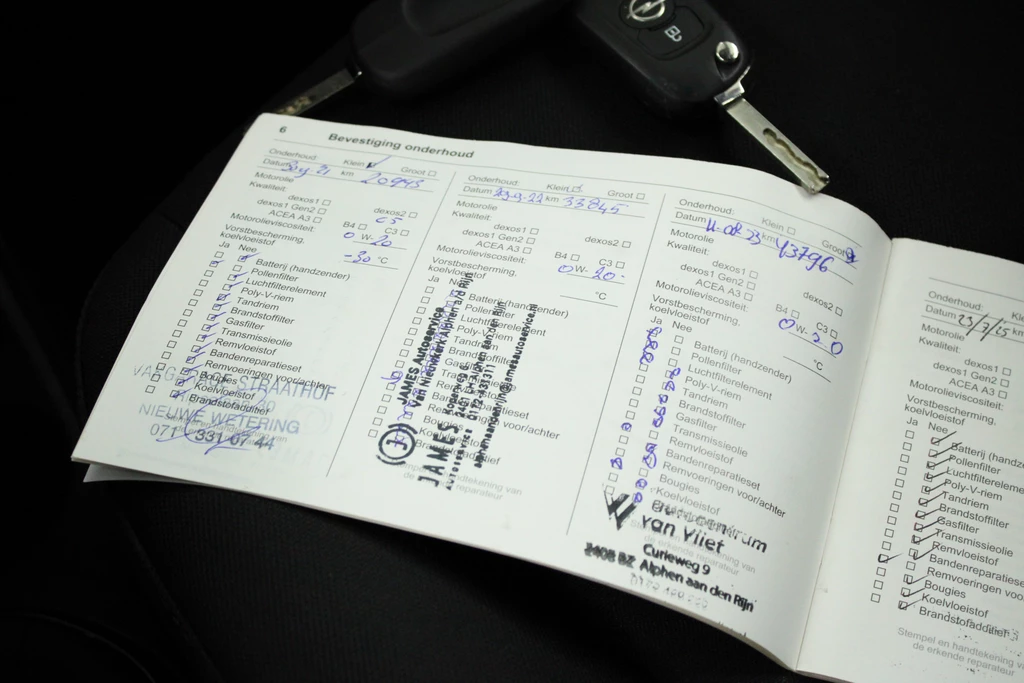 6 Bevestiging onderhoud
Onderhoud: Klein Groot
Datum km 20943
Motorolie
Kwaliteit:
dexos1
dexos1 Gen2 dexos2
ACEA A3 C5
Motorolieviscositeit: B4 C3
Vorstbescherming, 0 W- 20
koelvloeistof -30 °C
Ja Nee
Batterij (handzender)
Pollenfilter
Luchtfilterelement
Poly-V-riem
Tandriem
Brandstoffilter
Gasfilter
Transmissieolie
Remvloeistof
Bandenreparatieset
Remvoeringen voor/achter
Bougies
Koelvloeistof
Brandstofadditief
STRAATHOF
NIEUWE WETERING
071 - 331 07 44
Onderhoud: Klein Groot
Datum km 33845
Motorolie
Kwaliteit:
dexos1
dexos1 Gen2 dexos2
ACEA A3
Motorolieviscositeit: B4 C3
Vorstbescherming, 0 W- 20
koelvloeistof °C
Ja Nee
Batterij (handzender)
Pollenfilter
Luchtfilterelement
Poly-V-riem
Tandriem
JAMES Autoservice
JAMES
AUTOSERVICE
Stempel en handtekening van
de erkende reparateur
Onderhoud: Klein Groot
Datum 11-08-23 km 43796
Motorolie
Kwaliteit:
dexos1
dexos1 Gen2 dexos2
ACEA A3
Motorolieviscositeit: B4 C3
Vorstbescherming, 0 W- 20
koelvloeistof °C
Ja Nee
Batterij (handzender)
Pollenfilter
Luchtfilterelement
Poly-V-riem
Tandriem
Brandstoffilter
Gasfilter
Transmissieolie
Remvloeistof
Bandenreparatieset
Remvoeringen voor/achter
Bougies
Koelvloeistof
van Vliet
Curieweg 9
2408 BZ Alphen aan den Rijn
Onderhoud:
Datum 23/7/25
Motorolie
Kwaliteit:
dexos1
dexos1 Gen2
ACEA A3
Motorolieviscositeit:
Vorstbescherming,
koelvloeistof
Ja Nee
Batterij (handze
Pollenfilter
Luchtfilterelement
Poly-V-riem
Tandriem
Brandstoffilter
Gasfilter
Transmissieolie
Remvloeistof
Bandenreparatieset
Remvoeringen voo
Bougies
Koelvloeistof
Brandstofadditief
Stempel en handtekening v
de erkende reparateur